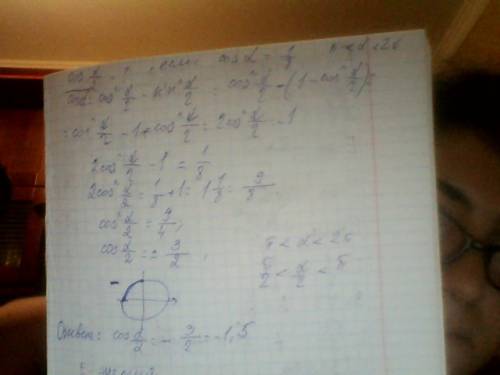 cos α/2 - ?, если cos α = 1/8 π < α < 2π
cos α = cos² α/2 - sin² α/2 = cos² α/2 - (1 - cos² α/2) =
= cos² α/2 - 1 + cos² α/2 = 2cos² α/2 - 1
2cos² α/2 - 1 = 1/8
2cos² α/2 = 1/8 + 1 = 1 1/8 = 9/8.
cos² α/2 = 9/4,
cos α/2 = ± 3/2, π < α < 2π
π/2 < α/2 < π
-
Ответ: cos α/2 = - 3/2 = -1,5